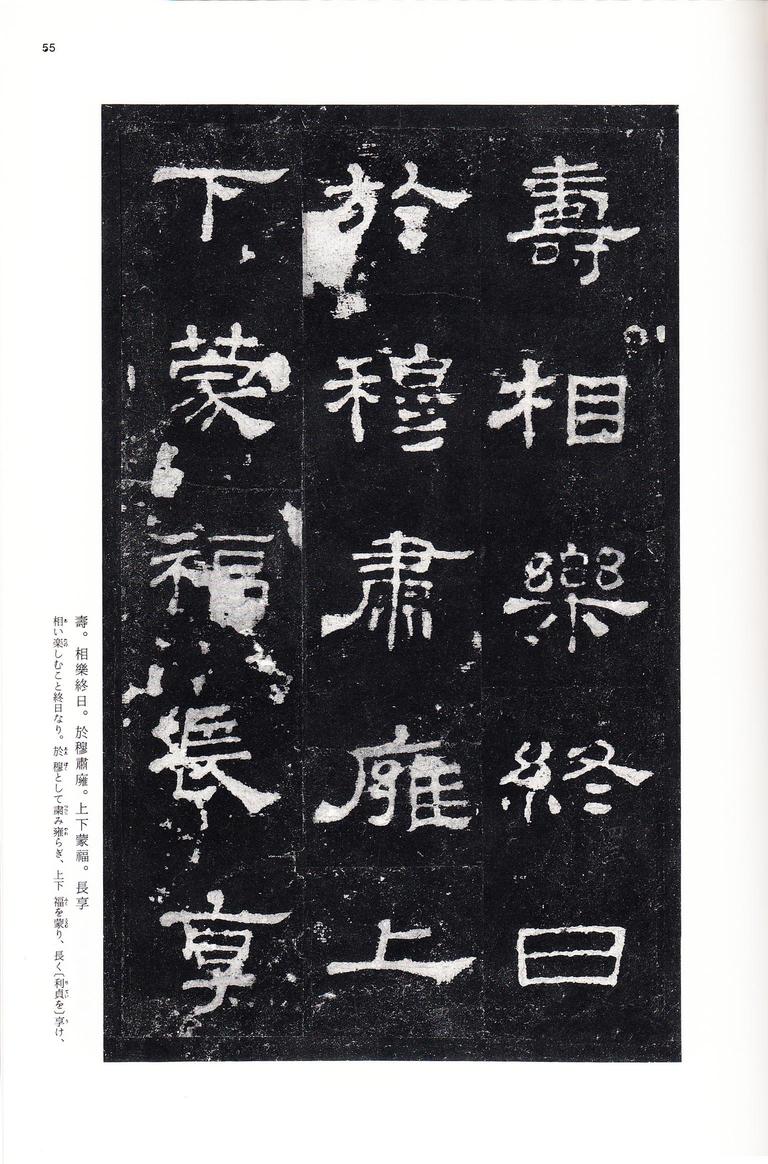 55
壽相樂終日
於穆肅雝上
下蒙福長享
壽。相樂終日。於穆肅雝。上下蒙福。長享
相い楽しむこと終日なり。於 穆として粛み雍らぎ、上下 福を蒙り、長く〔利貞を〕享け、